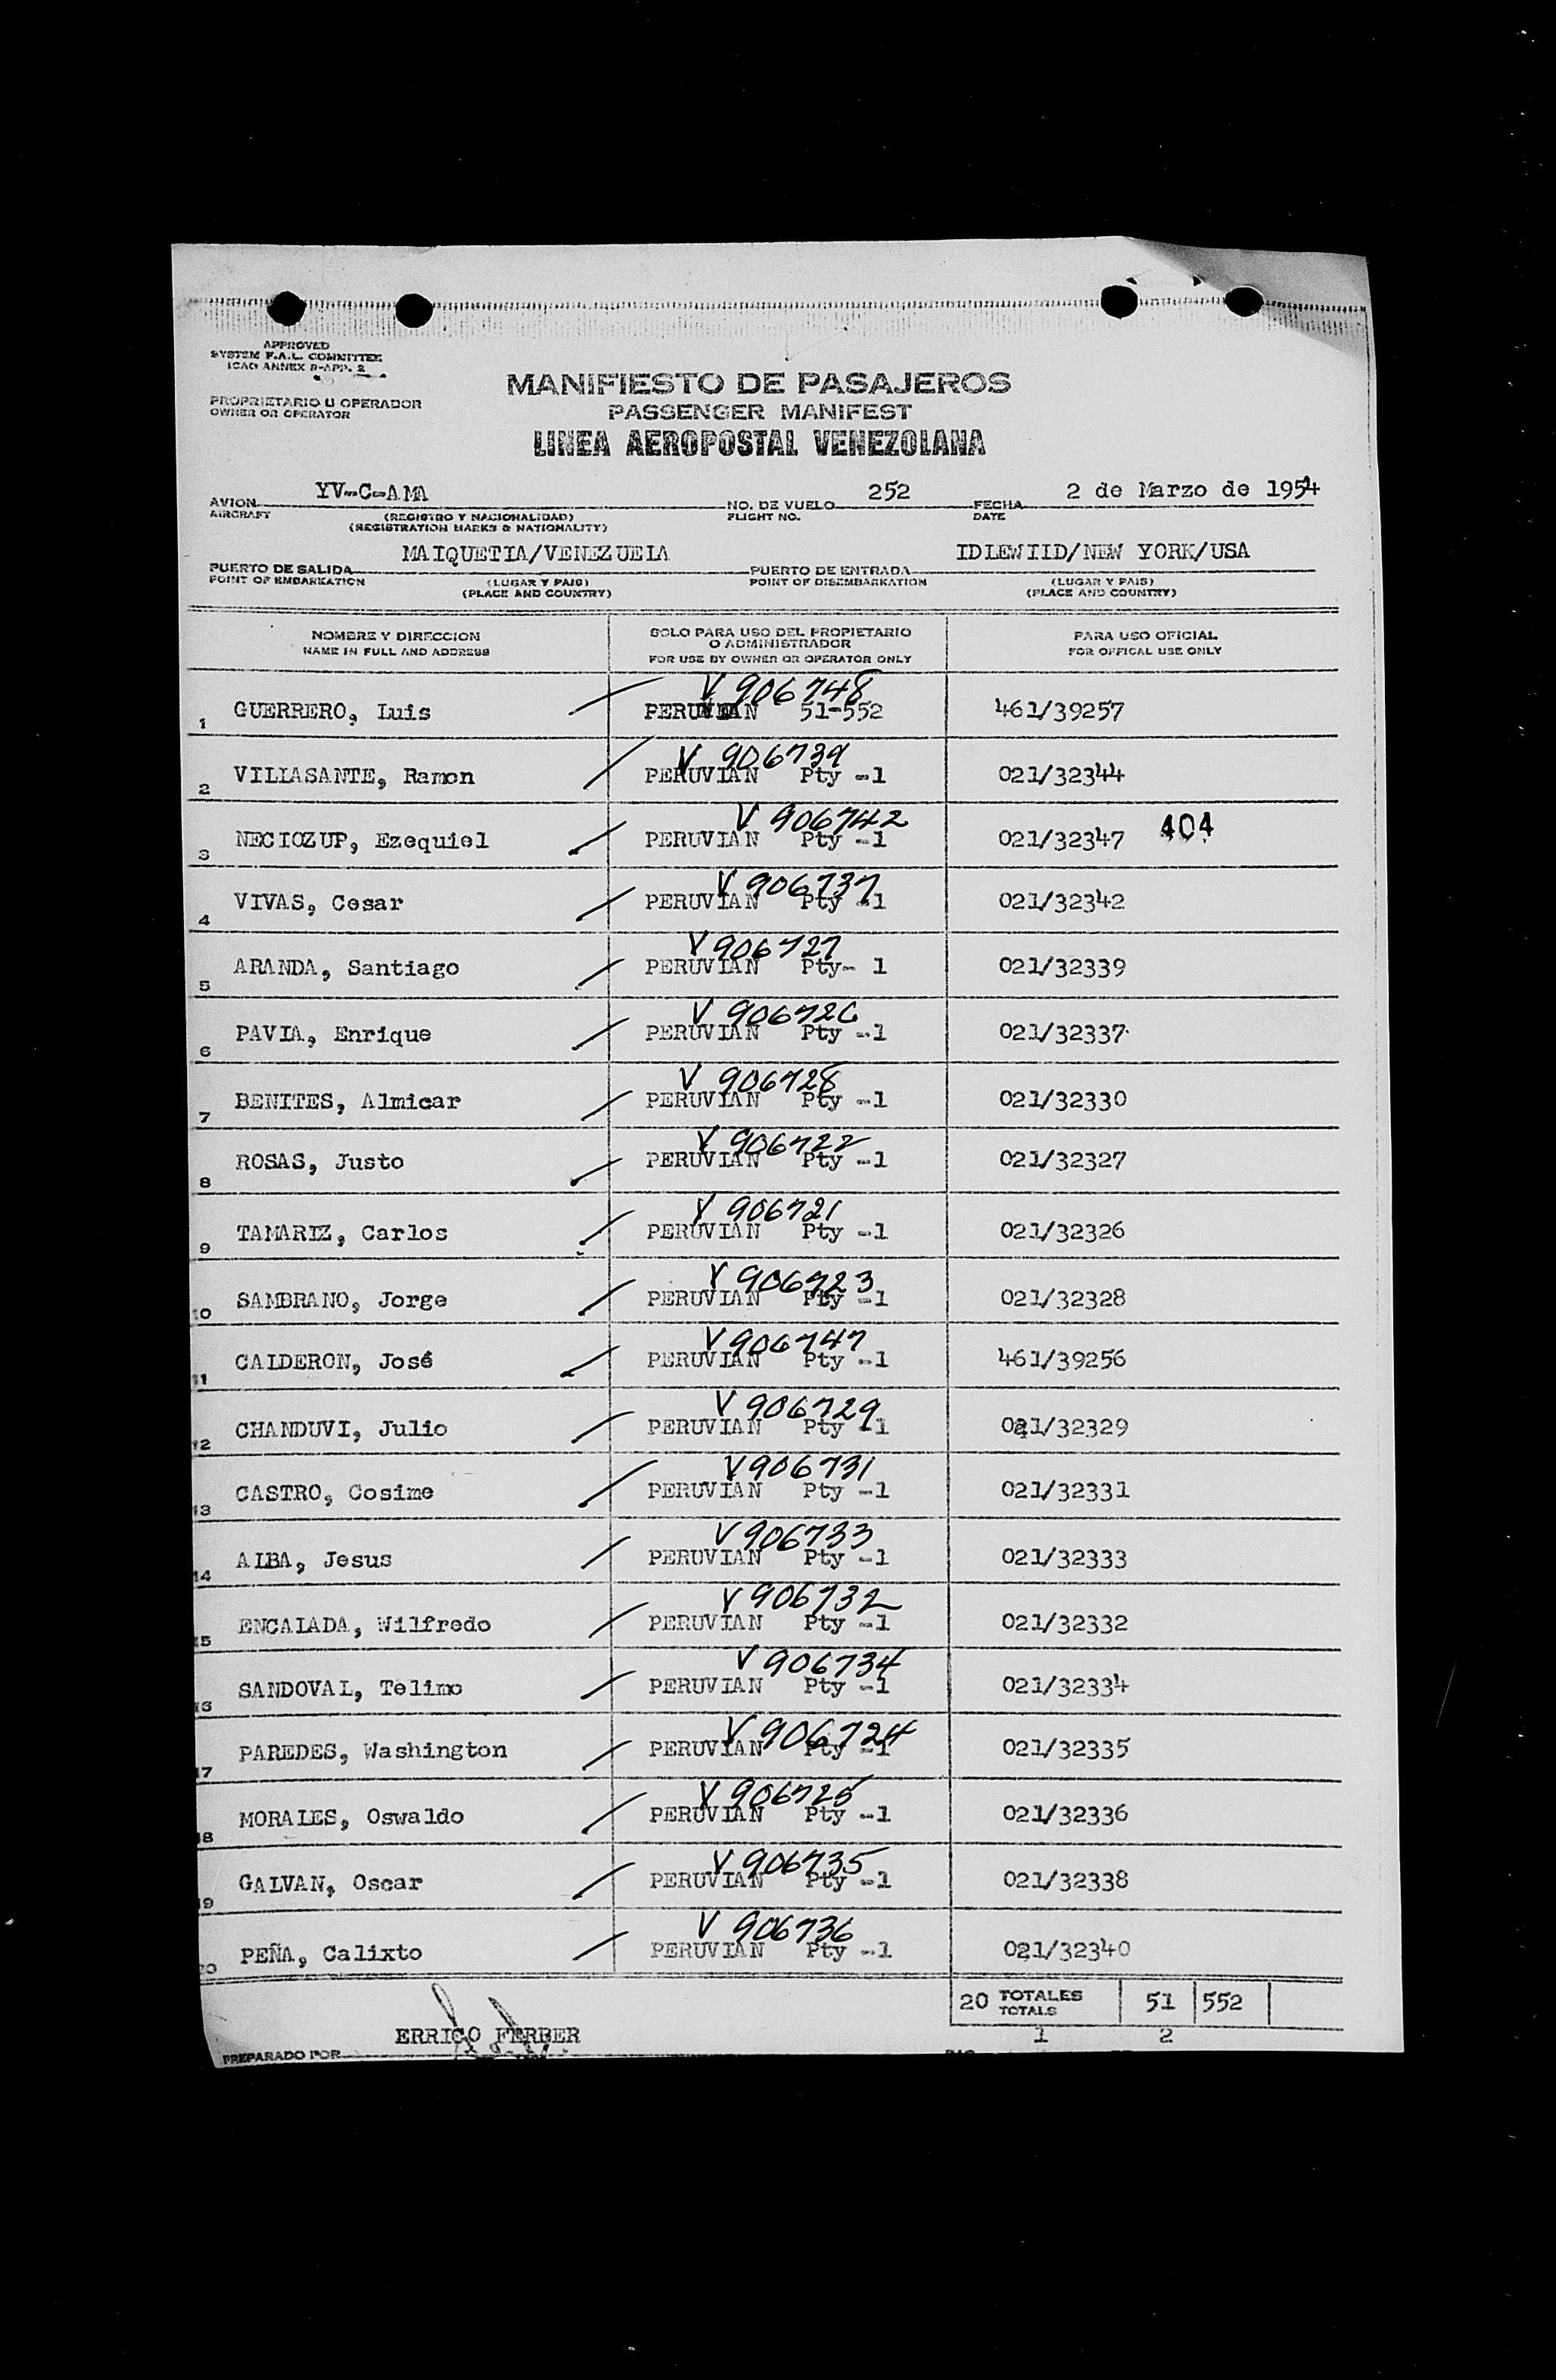 APPROVED
SYSTEM F.A.L. COMMITTEE
ICAO ANNEX 9-APP. 2
PROPRIETARIO U OPERADOR
OWNER OR OPERATOR
MANIFIESTO DE PASAJEROS
PASSENGER MANIFEST
LINEA AEROPOSTAL VENEZOLANA
AVION YV-C-AMA NO. DE VUELO 252 FECHA 2 de Marzo de 1954
AIRCRAFT (REGISTRO Y NACIONALIDAD) FLIGHT NO. DATE
(REGISTRATION MARKS & NATIONALITY)
PUERTO DE SALIDA MAIQUETIA/VENEZUELA PUERTO DE ENTRADA IDLEWIID/NEW YORK/USA
POINT OF EMBARKATION (LUGAR Y PAIS) POINT OF DISEMBARKATION (LUGAR Y PAIS)
(PLACE AND COUNTRY) (PLACE AND COUNTRY)
NOMBRE Y DIRECCION SOLO PARA USO DEL PROPIETARIO O ADMINISTRADOR PARA USO OFICIAL
NAME IN FULL AND ADDRESS FOR USE BY OWNER OR OPERATOR ONLY FOR OFFICAL USE ONLY
V 906748
1 GUERRERO, Luis PERUVIAN 51-552 461/39257
V 906739
2 VILLASANTE, Ramon PERUVIAN Pty -1 021/32344
V 906742
3 NECIOZUP, Ezequiel PERUVIAN Pty -1 021/32347 404
V 906737
4 VIVAS, Cesar PERUVIAN Pty -1 021/32342
V 906727
5 ARANDA, Santiago PERUVIAN Pty- 1 021/32339
V 906726
6 PAVIA, Enrique PERUVIAN Pty -1 021/32337
V 906728
7 BENITES, Almicar PERUVIAN Pty -1 021/32330
V 906722
8 ROSAS, Justo PERUVIAN Pty -1 021/32327
V 906721
9 TAMARIZ, Carlos PERUVIAN Pty -1 021/32326
V 906723
10 SAMBRANO, Jorge PERUVIAN Pty -1 021/32328
V 906747
11 CALDERON, José PERUVIAN Pty -1 461/39256
V 906729
12 CHANDUVI, Julio PERUVIAN Pty -1 021/32329
V 906731
13 CASTRO, Cosime PERUVIAN Pty -1 021/32331
V 906733
14 ALBA, Jesus PERUVIAN Pty -1 021/32333
V 906732
15 ENCALADA, Wilfredo PERUVIAN Pty -1 021/32332
V 906734
16 SANDOVAL, Telimo PERUVIAN Pty -1 021/32334
V 906724
17 PAREDES, Washington PERUVIAN Pty -1 021/32335
V 906725
18 MORALES, Oswaldo PERUVIAN Pty -1 021/32336
V 906735
19 GALVAN, Oscar PERUVIAN Pty -1 021/32338
V 906736
20 PEÑA, Calixto PERUVIAN Pty -1 021/32340
20 TOTALES 51 552
TOTALS
ERRICO FERBER 1 2
PREPARADO POR